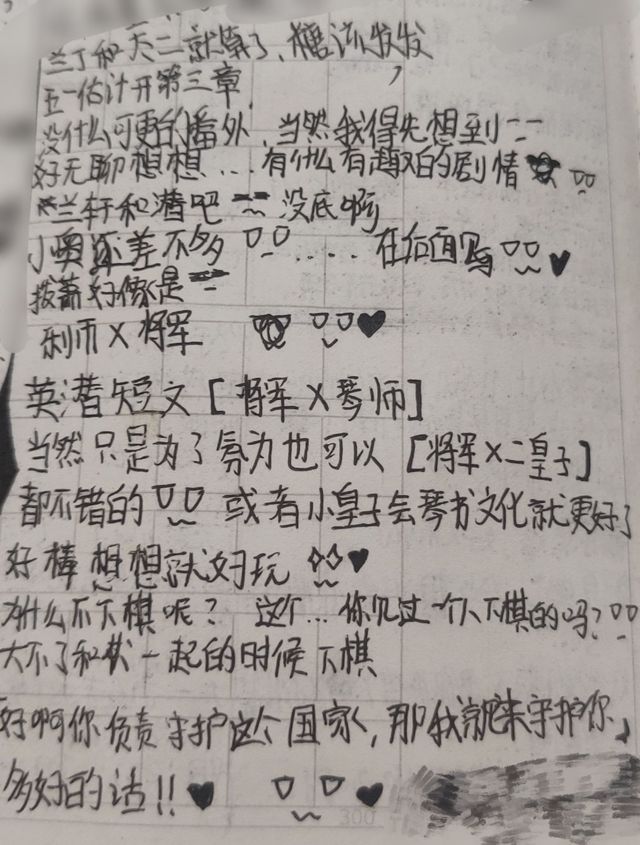 兰丁和天二就算了、糖该发发
五一估计开第三章
没什么可更的番外、当然我得先想到
好无聊想想....有什么有趣的剧情
兰轩和潜吧 没底啊
小奥还差不多 ..... 在后面写 ♥
拨萧好像是
利币×将军 ♥
英潜短文[将军×琴师]
当然只是为了氛为也可以[将军×二皇子]
都不错的 或者小皇子会琴书文化就更好了
好棒 想想就好玩 ♥
为什么不下棋呢? 这个...你见过一个人下棋的吗?
大不了和伏一起的时候下棋
好啊你负责守护这个国家,那我就来守护你」
多好的话!! ♥ ♥
300